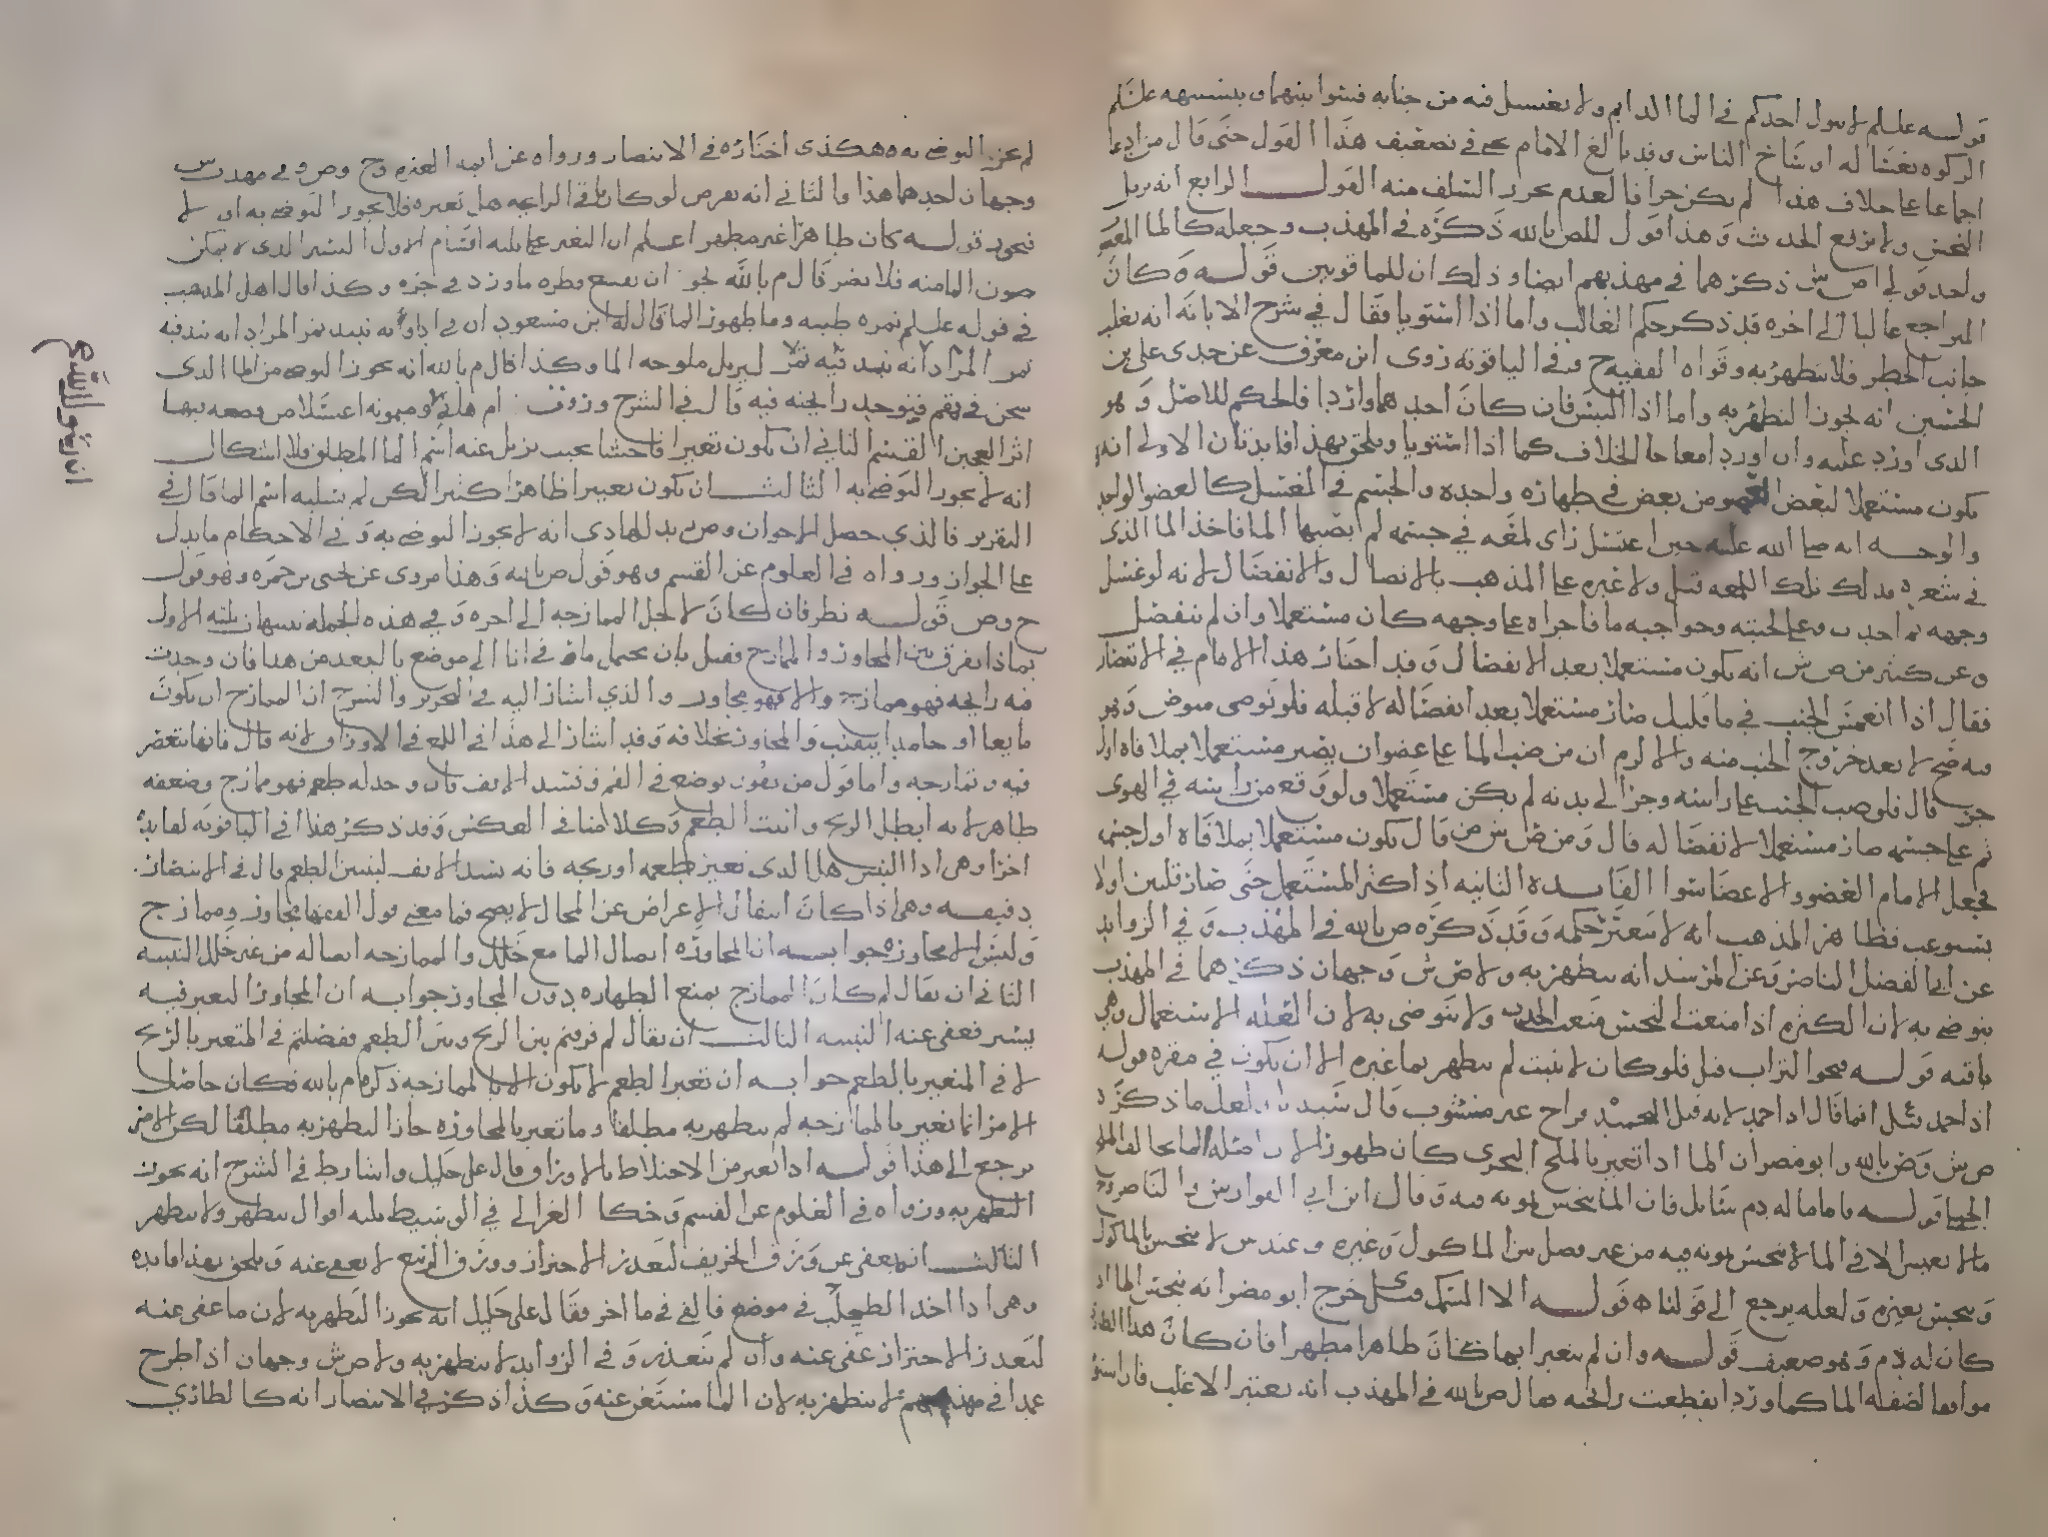 قوله علىلم لا يبول احدكم في الما الدايم ولا يغتسل فيه من جنابه فسوا بينهما وبنسبته
الركوه بغسا له اوساخ الناس وقد بالغ الامام في تضعيف هذا القول حتى قال من ادعا
اجماعا على خلاف هذا لم يكن جزافا لعدم تحرز السلف منه القول الرابع انه يزيل
النجس ولا يرفع الحدث وهذا قول للص بالله ذكره في المهذب وجعله كالما المغير
واحد قولي اص ش ذكرهما في مهذبهم ايضا وذلك ان للما قوتين قوله وكان
المراجع غالبا الى اخره قد ذكر حكم الغالب واما اذا استويا فقال في شرح الابانه انه يغلب
جانب الحظر فلا يتطهر به وقواه الفقيه ح وفي الياقوته روى ابن معرف عن جدى على بن
الحسين انه يجوز التطهر به واما اذا التبس فان كان احدهما واردا فالحكم للاصل وهو
الذى اورد عليه وان اوردا معا جا الخلاف كما اذا استويا ويلحق بهذا فايدتان الاولى انه
يكون مستعملا لبعض العضو من بعض في طهاره واحده والجسم في المغتسل كالعضو الواحد
والوجه انه صلى الله عليه حين اغتسل راى لمعه في جسمه لم يصبها الما فاخذ الما الذى
في شعره فدلك تلك اللمعه قيل ولا غيره على المذهب بالاتصال والانفصال لانه لو غسل
وجهه ثم احدث وعلى لحيته وحواجبه ما فاجراه على وجهه كان مستعملا وان لم ينفصل
وعن كثير من ص ش انه يكون مستعملا بعد الانفصال وقد اختار هذا الامام في الانتصار
فقال اذا انغمس الجنب في ما قليل صار مستعملا بعد انفصاله لا قبله فلو توضى متوض وهو
فيه صح لا بعد خروج الجنب منه والا لزم ان من صب الما على عضوان يصير مستعملا بملاقاه اول
جزء قال فلو صب الجنب على راسه وجرا الى بدنه لم يكن مستعملا ولو وقع من راسه في الهوى
ثم على جسمه صار مستعملا لانفصاله قال ومن ص ش من قال يكون مستعملا بملاقاه اول جسمه
فجعل الامام العضو والاعضا سوا الفايده الثانيه اذا كثر المستعمل حتى صار قلتين اولا
يستوعب فظاهر المذهب انه لا يتغير حكمه وقد ذكره ص بالله في المهذب وفي الزوايد
عن ابي الفضل الناصر وعن المرشد انه يتطهر به ولاص ش وجهان ذكرهما في المهذب
يتوضى به لان الكثره اذا منعت النجس منعت الحدث ولا يتوضى به لان العله الاستعمال وهي
باقيه قوله نحو التراب قيل فلو كان لا ينبت لم يتطهر بما غيره الا ان يكون في مقره قوله
ص ش وص بالله وابو مضر ان الما اذا تغير بالملح البحرى كان طهورا لان اصله الما بخلاف الملح
الجبلى قوله فاما ما له دم سايل فان الما ينجس بموته فيه وقال ابن ابي الفوارس والناصر
مالا يعيش الا في الما لا ينجس بموته فيه من غير فصل بين الماكول وغيره وعند ش لا ينجس بالماكول
وينجس بغيره ولعله يرجع الى قولنا ه قوله الا السمك خرج ابو مضر انه ينجس الما اذا
كان له دم وهو ضعيف قوله وان لم يتغير بها كان طاهرا مطهرا فان كان هذا الطارى
موافقا لصفه الما كما ورد انقطعت رايحته فقال ص بالله في المهذب انه يعتبر الاغلب فان استويا
لم يجز التوضى به وهكذى اختاره في الانتصار ورواه عن
وجهان احدهما هذا والثاني انه يعرض لو كان باقى الرايحه هل تغيره فلا يجوز التوضى به او لا
فيجوز قوله كان طاهرا غير مطهر اعلم ان التغير على ثلثه اقسام الاول اليسير الذى لا يمكن
صون الما منه فلا يضر قال م بالله نحو ان يقع قطره ماورد في جره وكذا قال اهل المذهب
في قوله علىلم تمره طيبه وما طهور لما قال له ابن مسعود ان في اداوته نبيذ تمر المراد انه نبذ فيه
تمر المراد انه نبذ فيه تمر ليزيل ملوحه الما وكذا قال م بالله انه يجوز التوضى من الما الذى
سخن في قمقم فيوجد رايحته فيه قال في الشرح وروت ام هاني وميمونه اغتسلا من قصعه فيها
اثر العجين القسم الثاني ان يكون تغيرا فاحشا بحيث يزيل عنه اسم الما المطلق فلا اشكال
انه لا يجوز التوضى به الثالث ان يكون تغييرا ظاهرا كثيرا لكن لم يسلبه اسم الما قال في
التقرير فالذي حصل للاخوان وص بالله للهادى انه لا يجوز التوضى به وفي الاحكام ما يدل
على الجواز ورواه في العلوم عن القسم وهو قول ص بالله وهذا مروى عن يحيى بن حمزه وهو قول
ح وص قوله نظر فان كان لاجل الممازجه الى اخره وفي هذه الجمله تنبيهات ثلثه الاول
بماذا يفرق بين المجاور والممازج فقيل بان يحمل ماؤه في انا الى موضع بالبعد من هذا فان وجدت
فيه رايحه فهو ممازج والا فهو مجاور والذي اشار اليه في التحرير والشرح ان الممازج ان يكون
مايعا او جامدا يتفتت والمجاور بخلافه وقد اشار الى هذا في اللمع في الاوراق لانه قال فانها تتعصر
فيه وتمازجه واما قول من يقول يوضع في الفم وتشد الانف فان وجد له طعم فهو ممازج وضعفه
ظاهر لانه ابطل الريح واثبت الطعم وكلامنا في العكس وقد ذكر هذا في الياقوته لفايده
اخرا وهي اذا التبس هل الذى تغير طعمه اوريحه فانه تشد الانف ليتبين الطعم قال في الانتصار
دقيقه وهي اذا كان انتقال الاعراض عن المحال لا يصح فما معنى قول الفقها مجاور وممازج
وليس الا مجاوره جوابه ان المجاوره اتصال الما مع خلل والممازجه اتصاله من غير خلل التنبيه
الثاني ان يقال لم كان الممازج يمنع الطهاره دون المجاور جوابه ان المجاور التغير فيه
يسير فعفى عنه التنبيه الثالث ان يقال لم فرقتم بين الريح وبين الطعم ففصلتم في المتغير بالريح
لا في المتغير بالطعم جوابه ان تغير الطعم لا يكون الا بالممازجه ذكره م بالله فكان حاصل
الامر انما تغير بالممازجه لم يتطهر به مطلقا وما تغير بالمجاوره جاز التطهر به مطلقا لكن الامر
يرجع الى هذا قوله اذا تغير من الاختلاط بالاوراق وقال على خليل واشارط في الشرح انه يجوز
التطهر به ورواه في العلوم عن القسم وحكا الغزالي في الوسيط ثلثه اقوال يتطهر ولا يتطهر
الثالث انه يعفى عن ورق الخريف لتعذر الاحتراز وورق الربيع لا يعفى عنه ويلحق بهذا فايده
وهي اذا اخذ الطحلب في موضع فالقى في ما اخر فقال على خليل انه يجوز التطهر به لان ما عفى عنه
لتعذر الاحتراز عفى عنه وان لم يتعذر وفي الزوايد لا يتطهر به ولاص ش وجهان اذا طرح
عمدا في مهذبهم لا يتطهر به لان الما مستغن عنه وكذا ذكر في الانتصار انه كالطارى